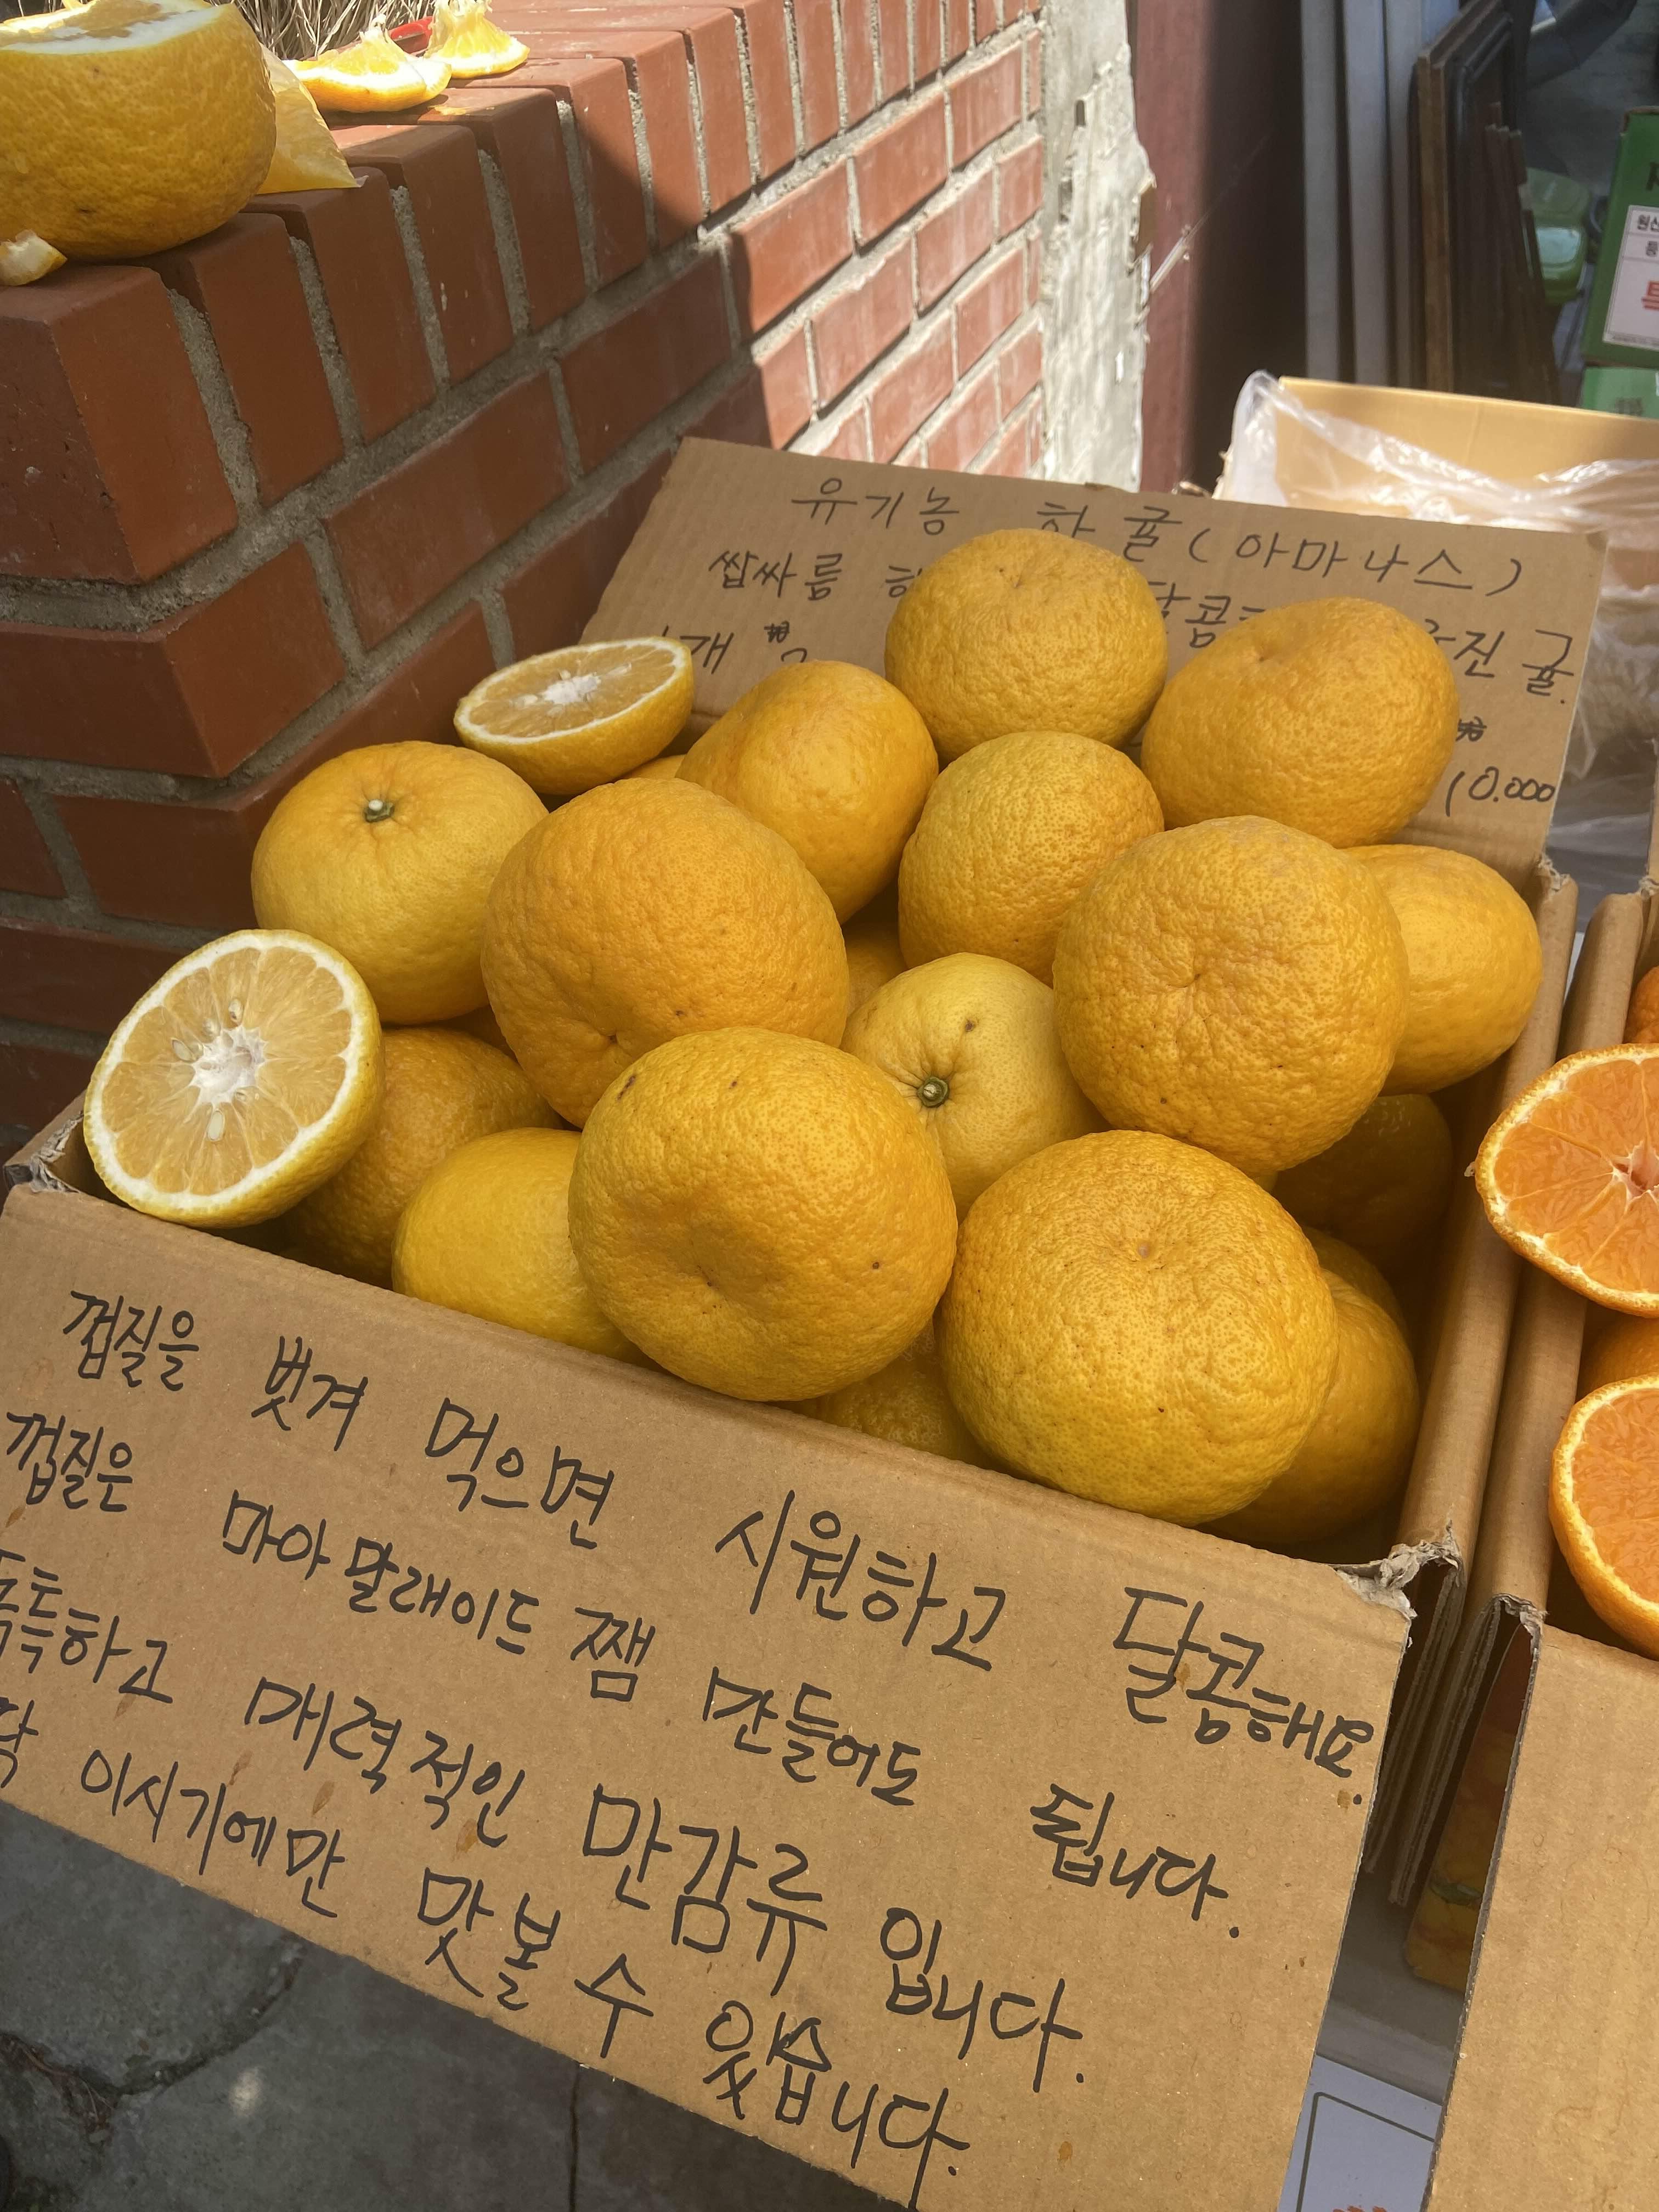 유기농 하귤(아마나스)
쌉싸름
개
귤.
10.000
껍질을 벗겨 먹으면 시원하고 달콤해요.
껍질은 마아말래이드 쨈 만들어도 됩니다.
독특하고 매력적인 만감류 입니다.
딱 이시기에만 맛볼 수 있습니다.